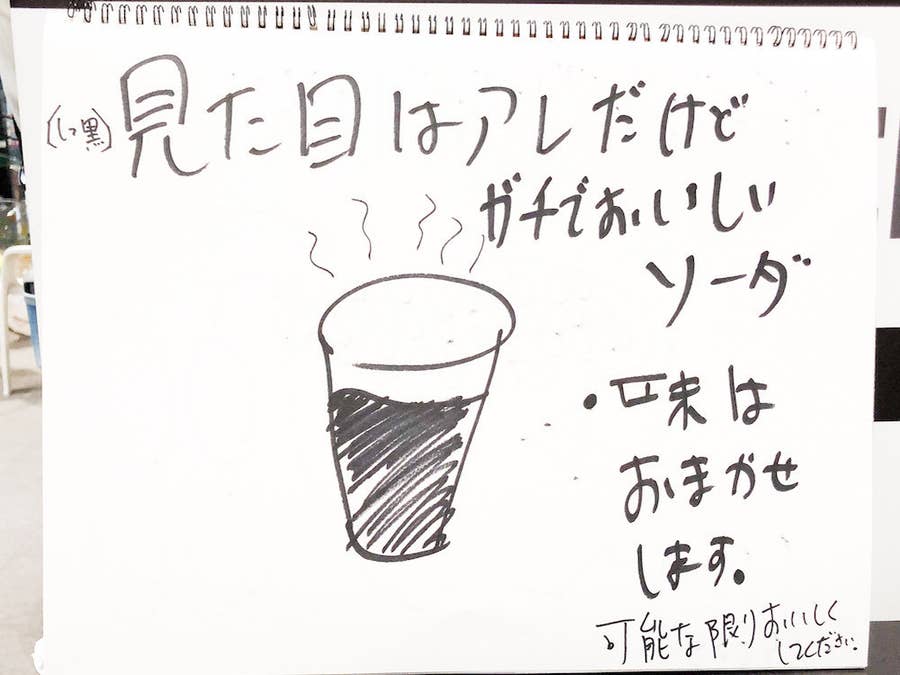 見た目はアレだけど
ガチでおいしい
ソーダ
・味は
おまかせ
します。
可能な限りおいしく
してください。